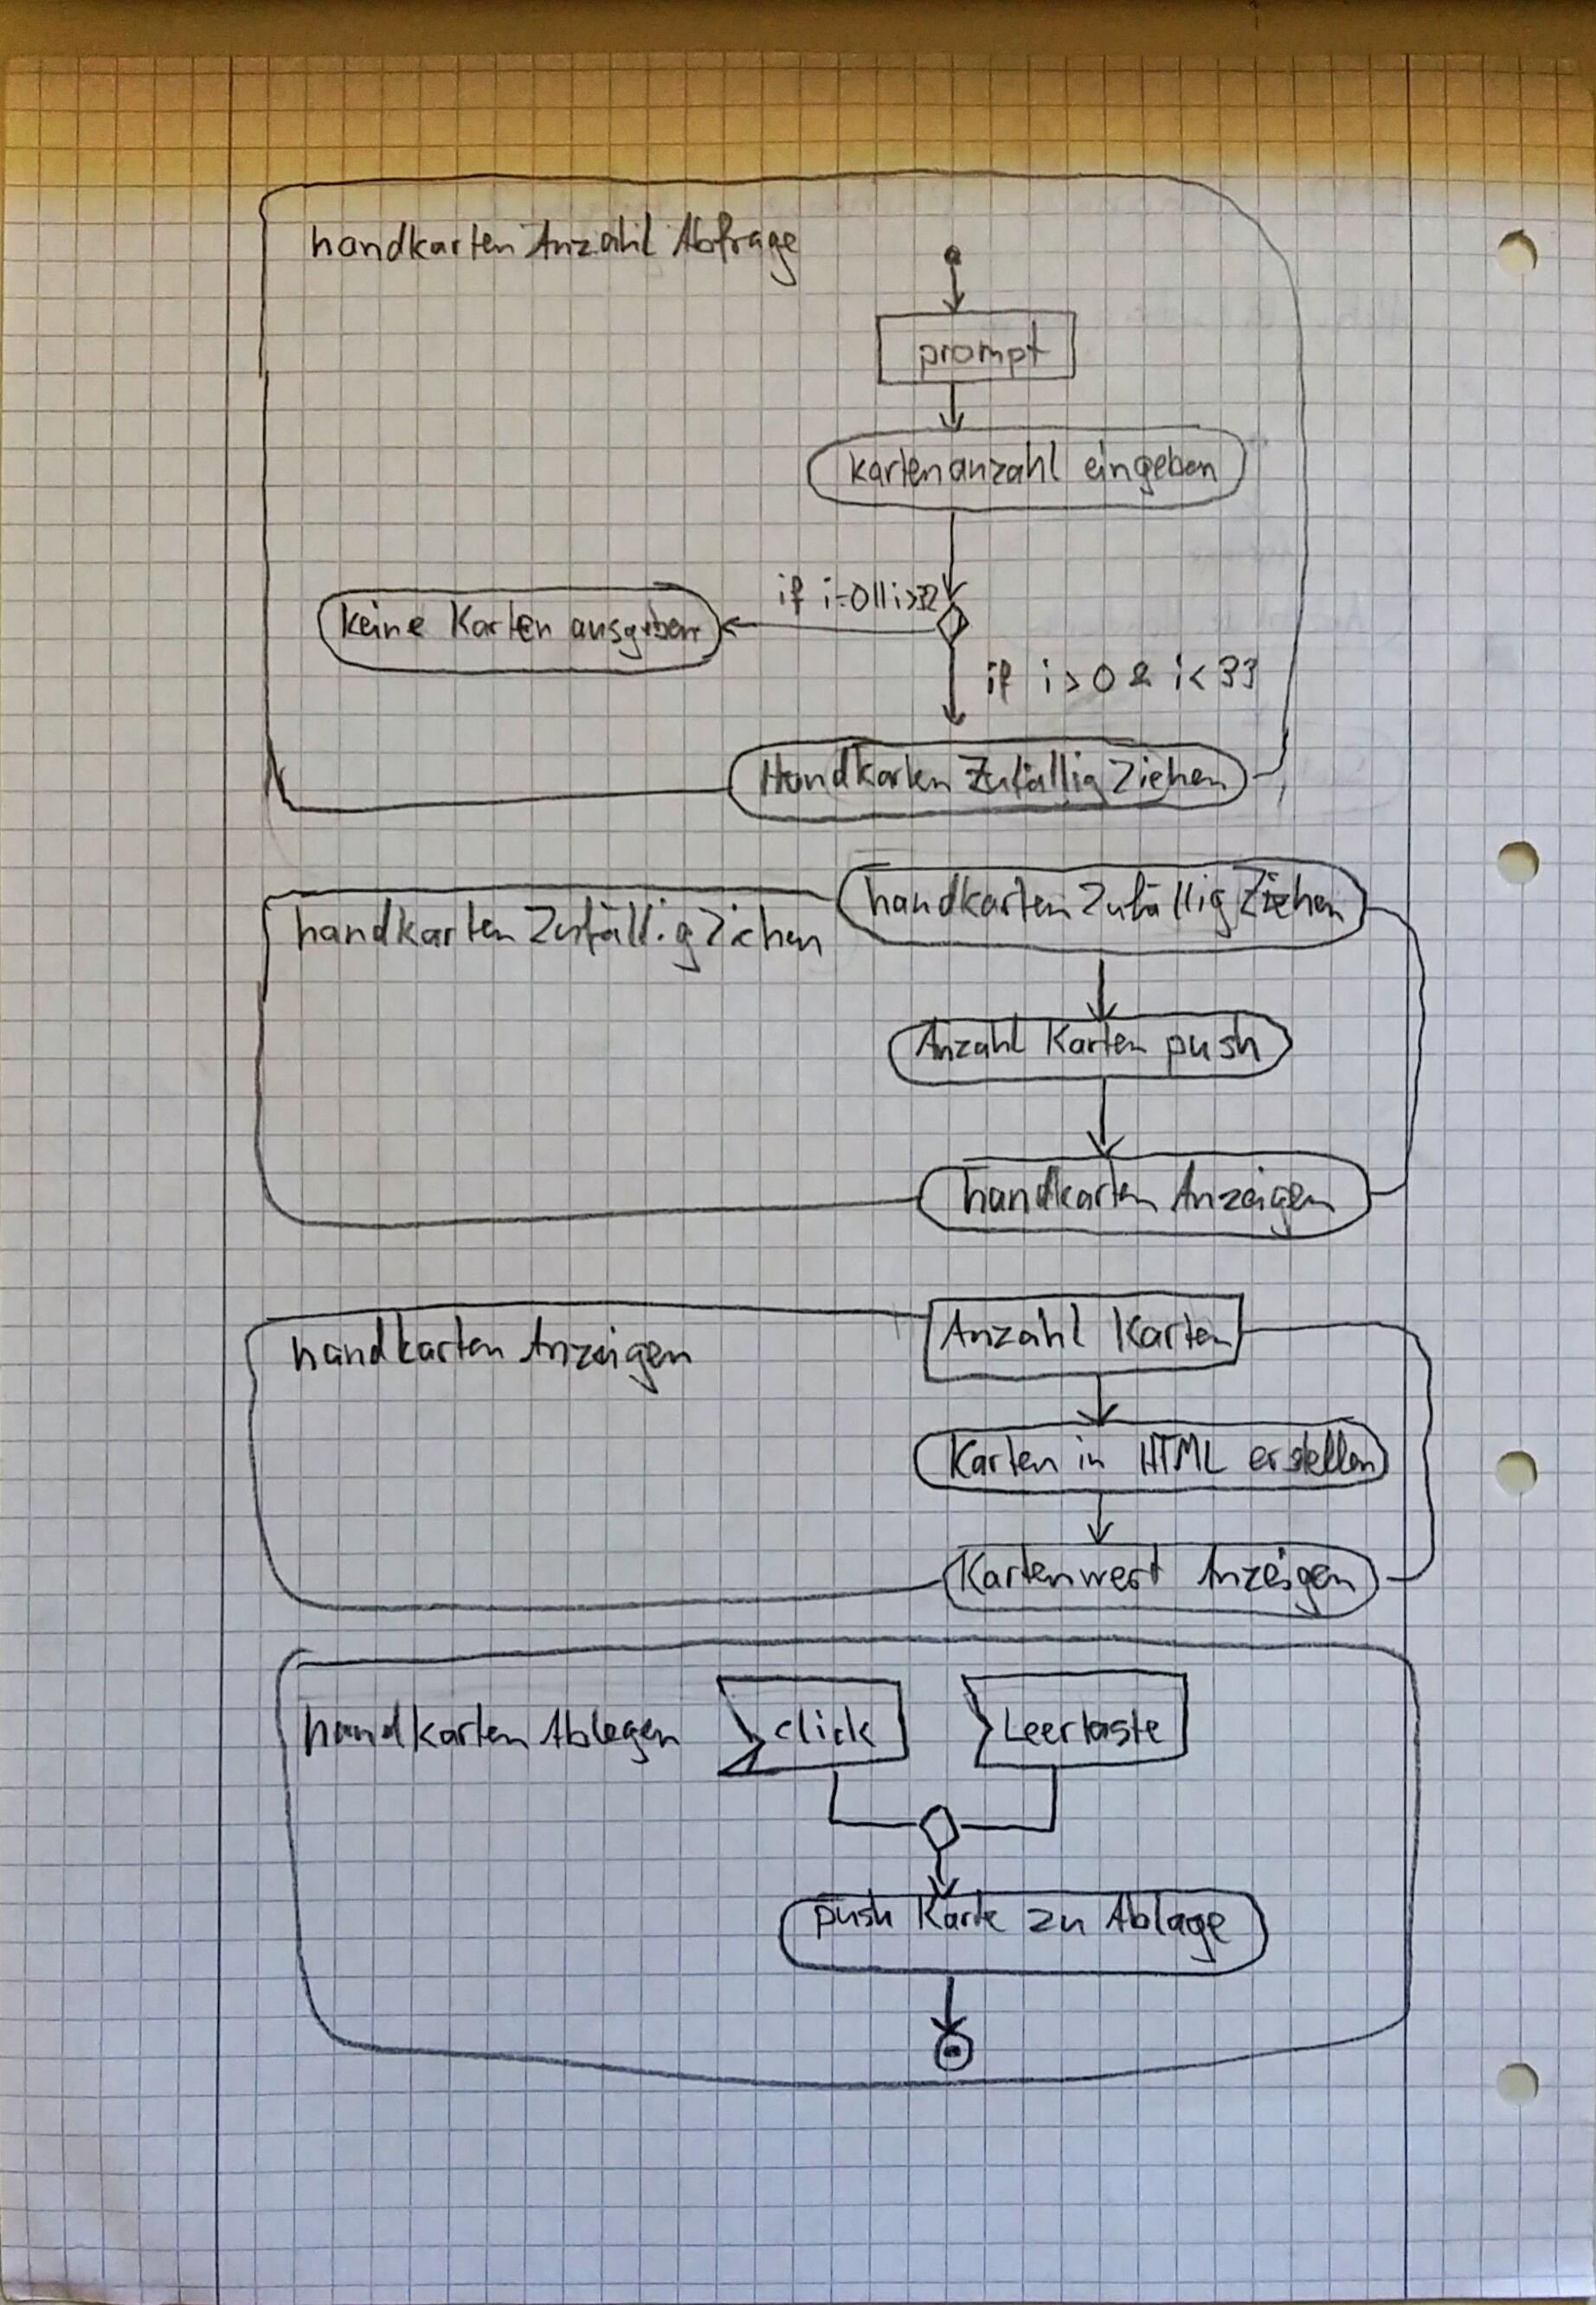 handkartenAnzahlAbfrage
prompt
kartenanzahl eingeben
if i=0||i>32
keine Karten ausgeben
if i>0 & i<33
HandkartenZufälligZiehen
handkartenZufälligZiehen
handkartenZufälligZiehen
Anzahl Karten push
handkartenAnzeigen
Anzahl Karten
handkartenAnzeigen
Karten in HTML erstellen
Kartenwert Anzeigen
click
Leertaste
handkartenAblegen
push Karte zu Ablage